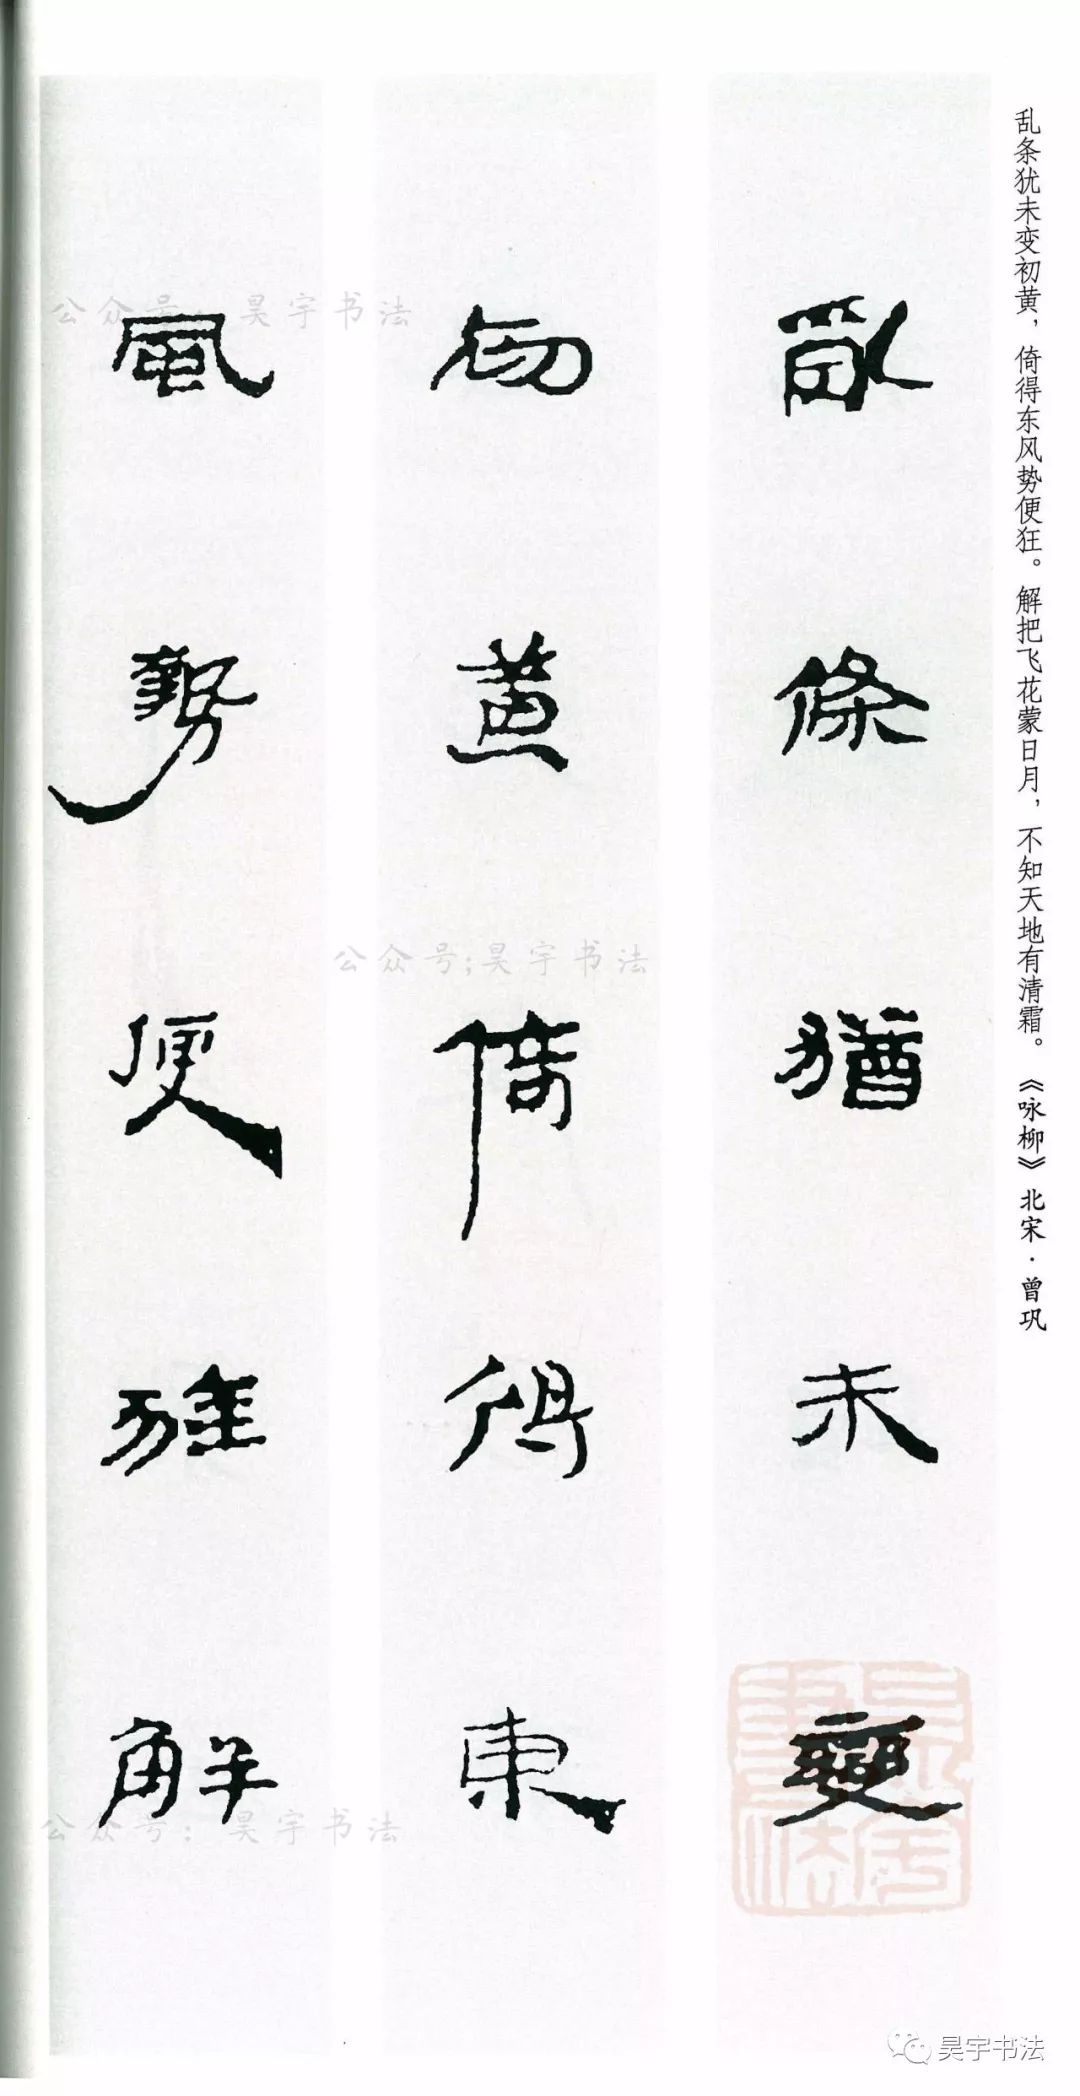 乱条犹未变初黄，倚得东风势便狂。解把飞花蒙日月，不知天地有清霜。《咏柳》北宋·曾巩
亂條猶未變
初黃倚得東
風勢便狂解
公众号：昊宇书法
公众号;昊宇书法
公众号：昊宇书法
昊宇书法
昊宇书法